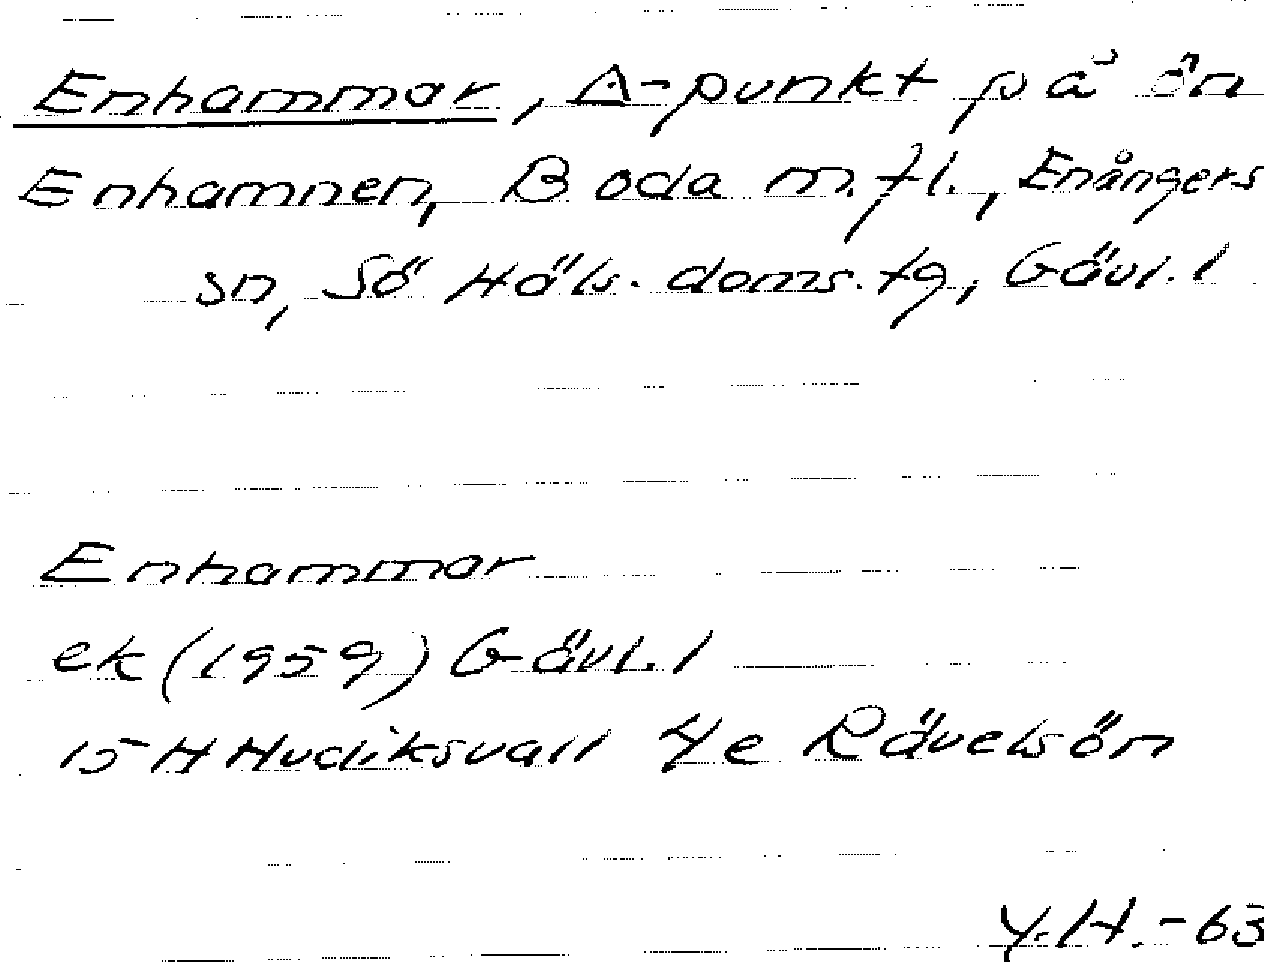 Enhammar, Δ-punkt på ön
Enhamnen, Boda m.fl., Enångers
sn, Sö Häls. doms. tg, Gävl. l
Enhammar
ek (1959) Gävl. l
15 H Hudiksvall 4e Rävelsön
Y.H. -63